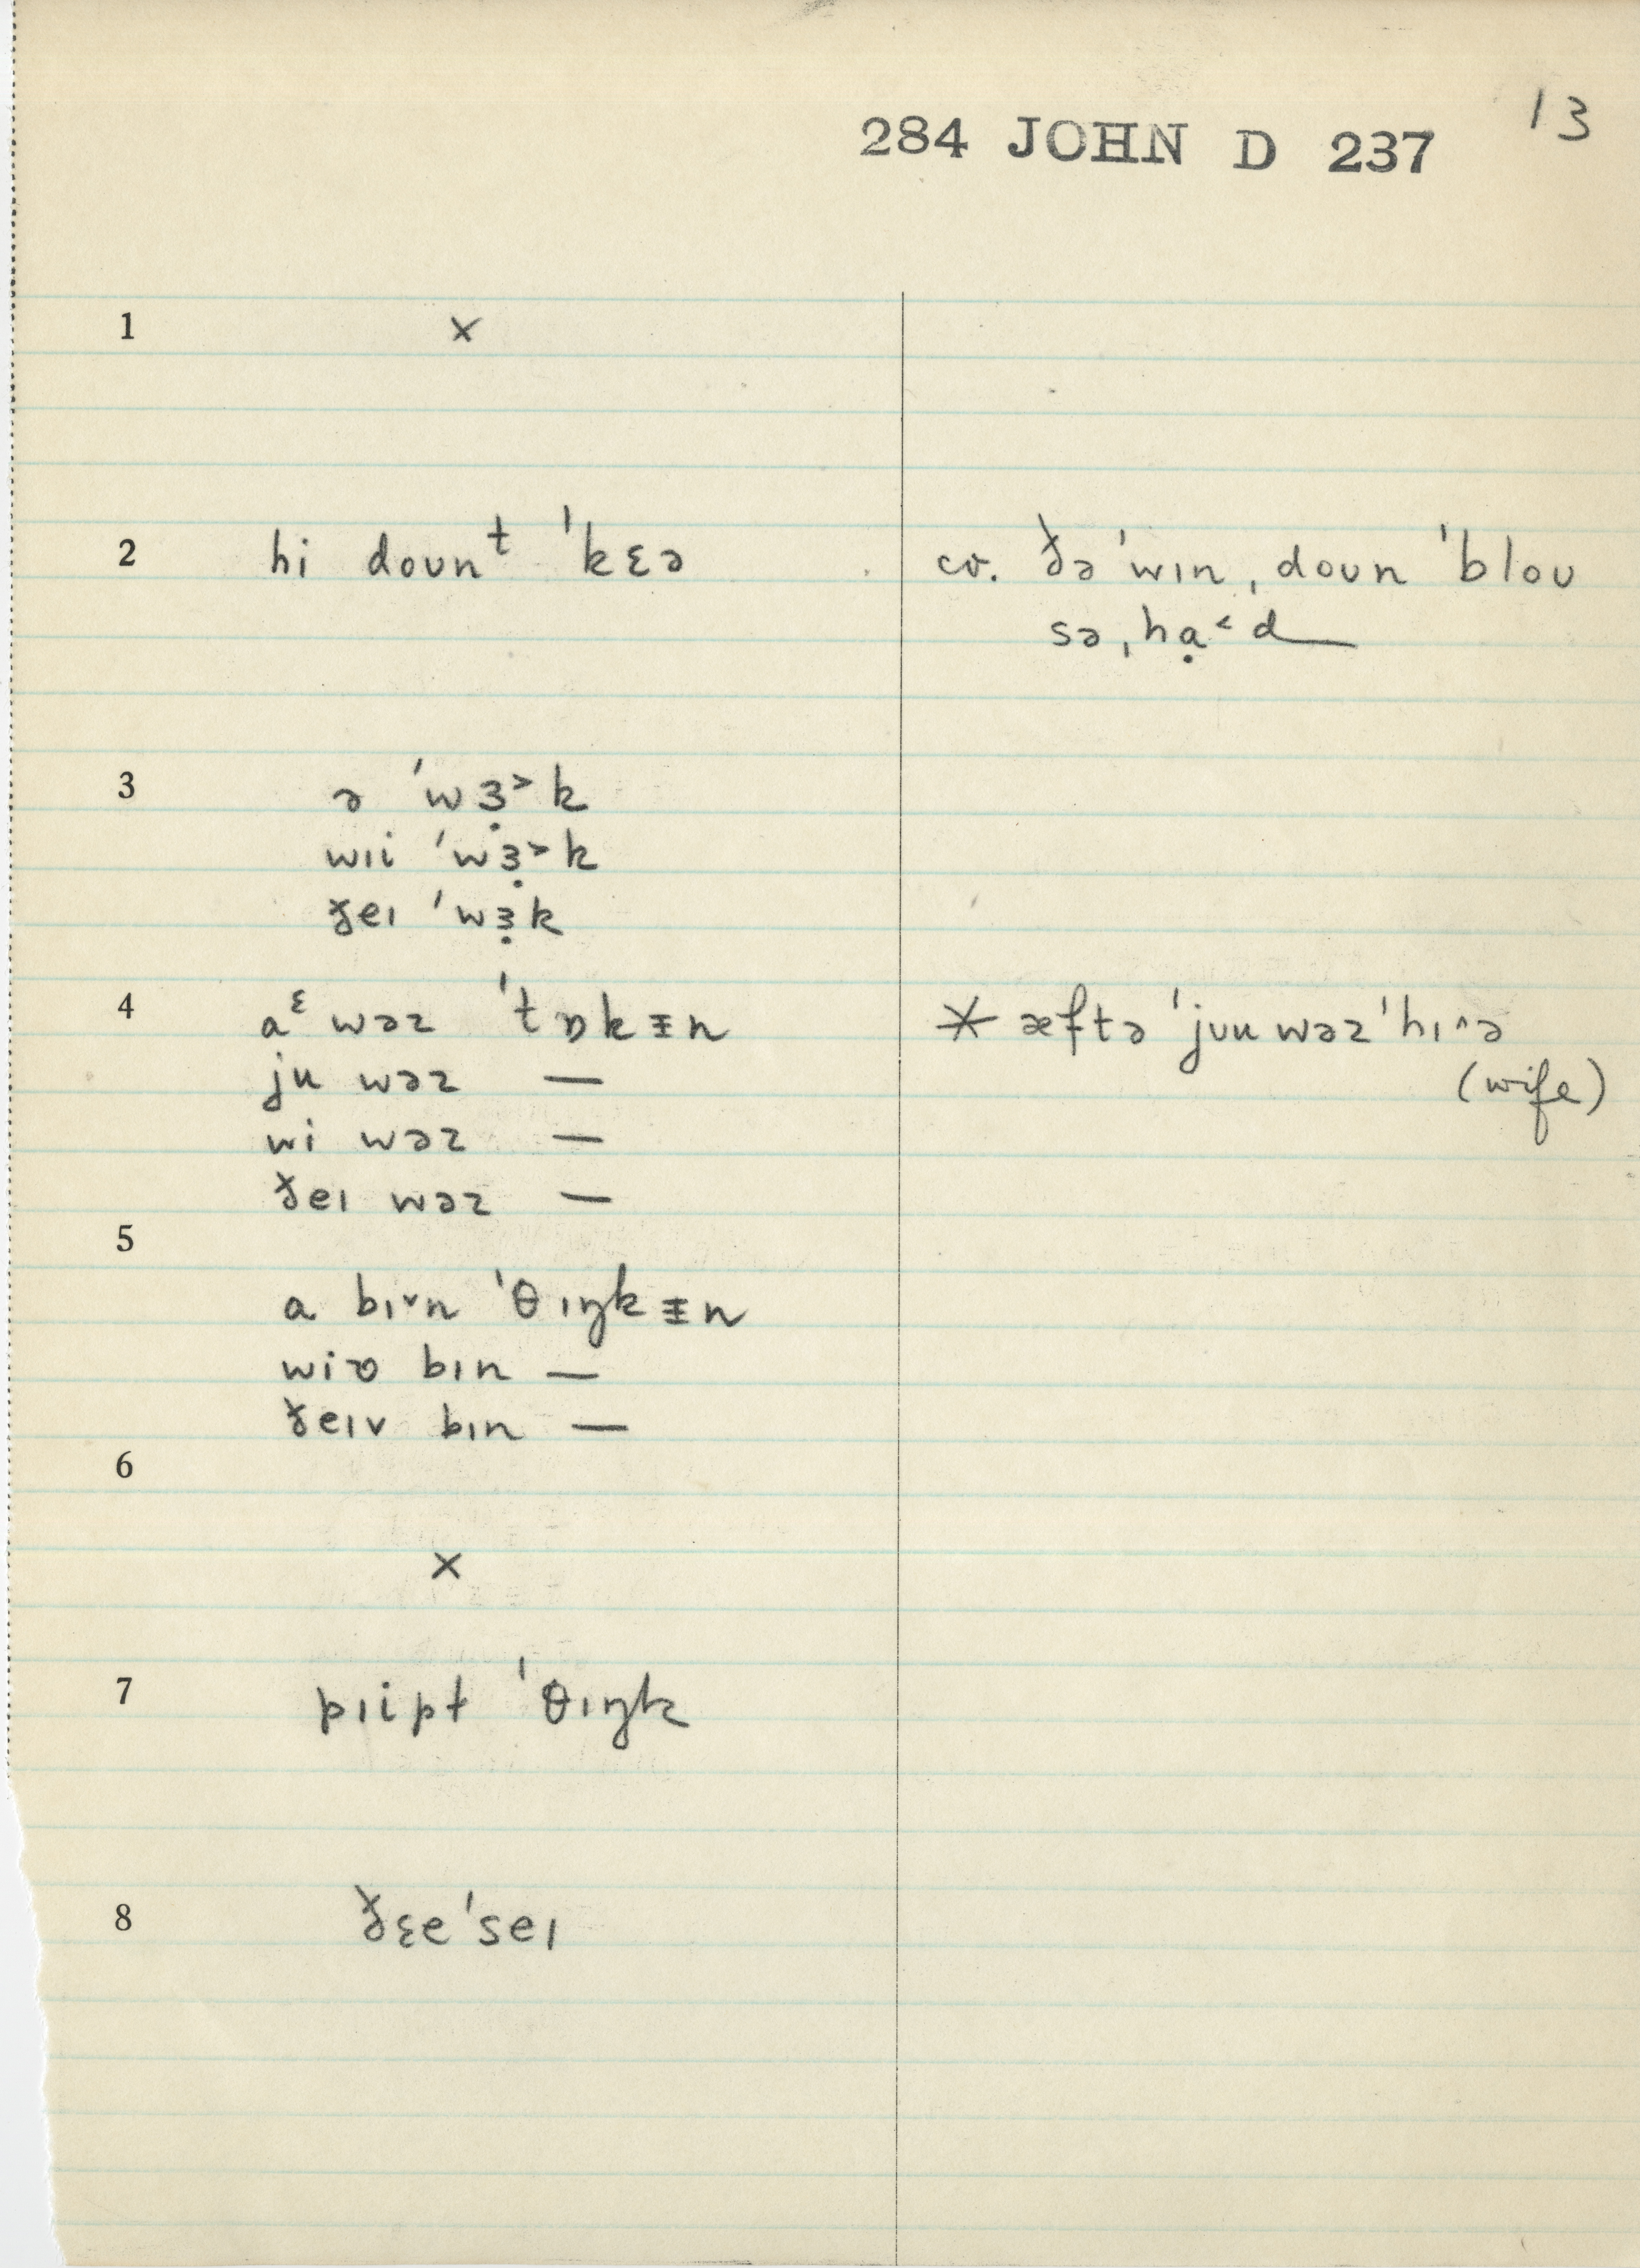 284 JOHN D 237 13
1 ×
2 hi doʊnᵗ ˈkɛə cv. ðəˈwɪn ˌdoʊn ˈbloʊ
sə ˌhạ˂d
3 ə ˈwɜ̣˃k
wɪi ˈwɜ̣˃k
ðeɪ ˈwɜ̣k
4 aᵋ wəz ˈtɒkᵻn * æftə ˈjʊu wəz ˈhɪ^ə
ju wəz — (wife)
wi wəz —
ðeɪ wəz —
5
a bɪ˅n ˈθɪŋkᵻn
wiʋ bɪn —
ðeɪv bɪn —
6
×
7 pɪipt ˈθɪŋk
8 ðɛeˈseɪ